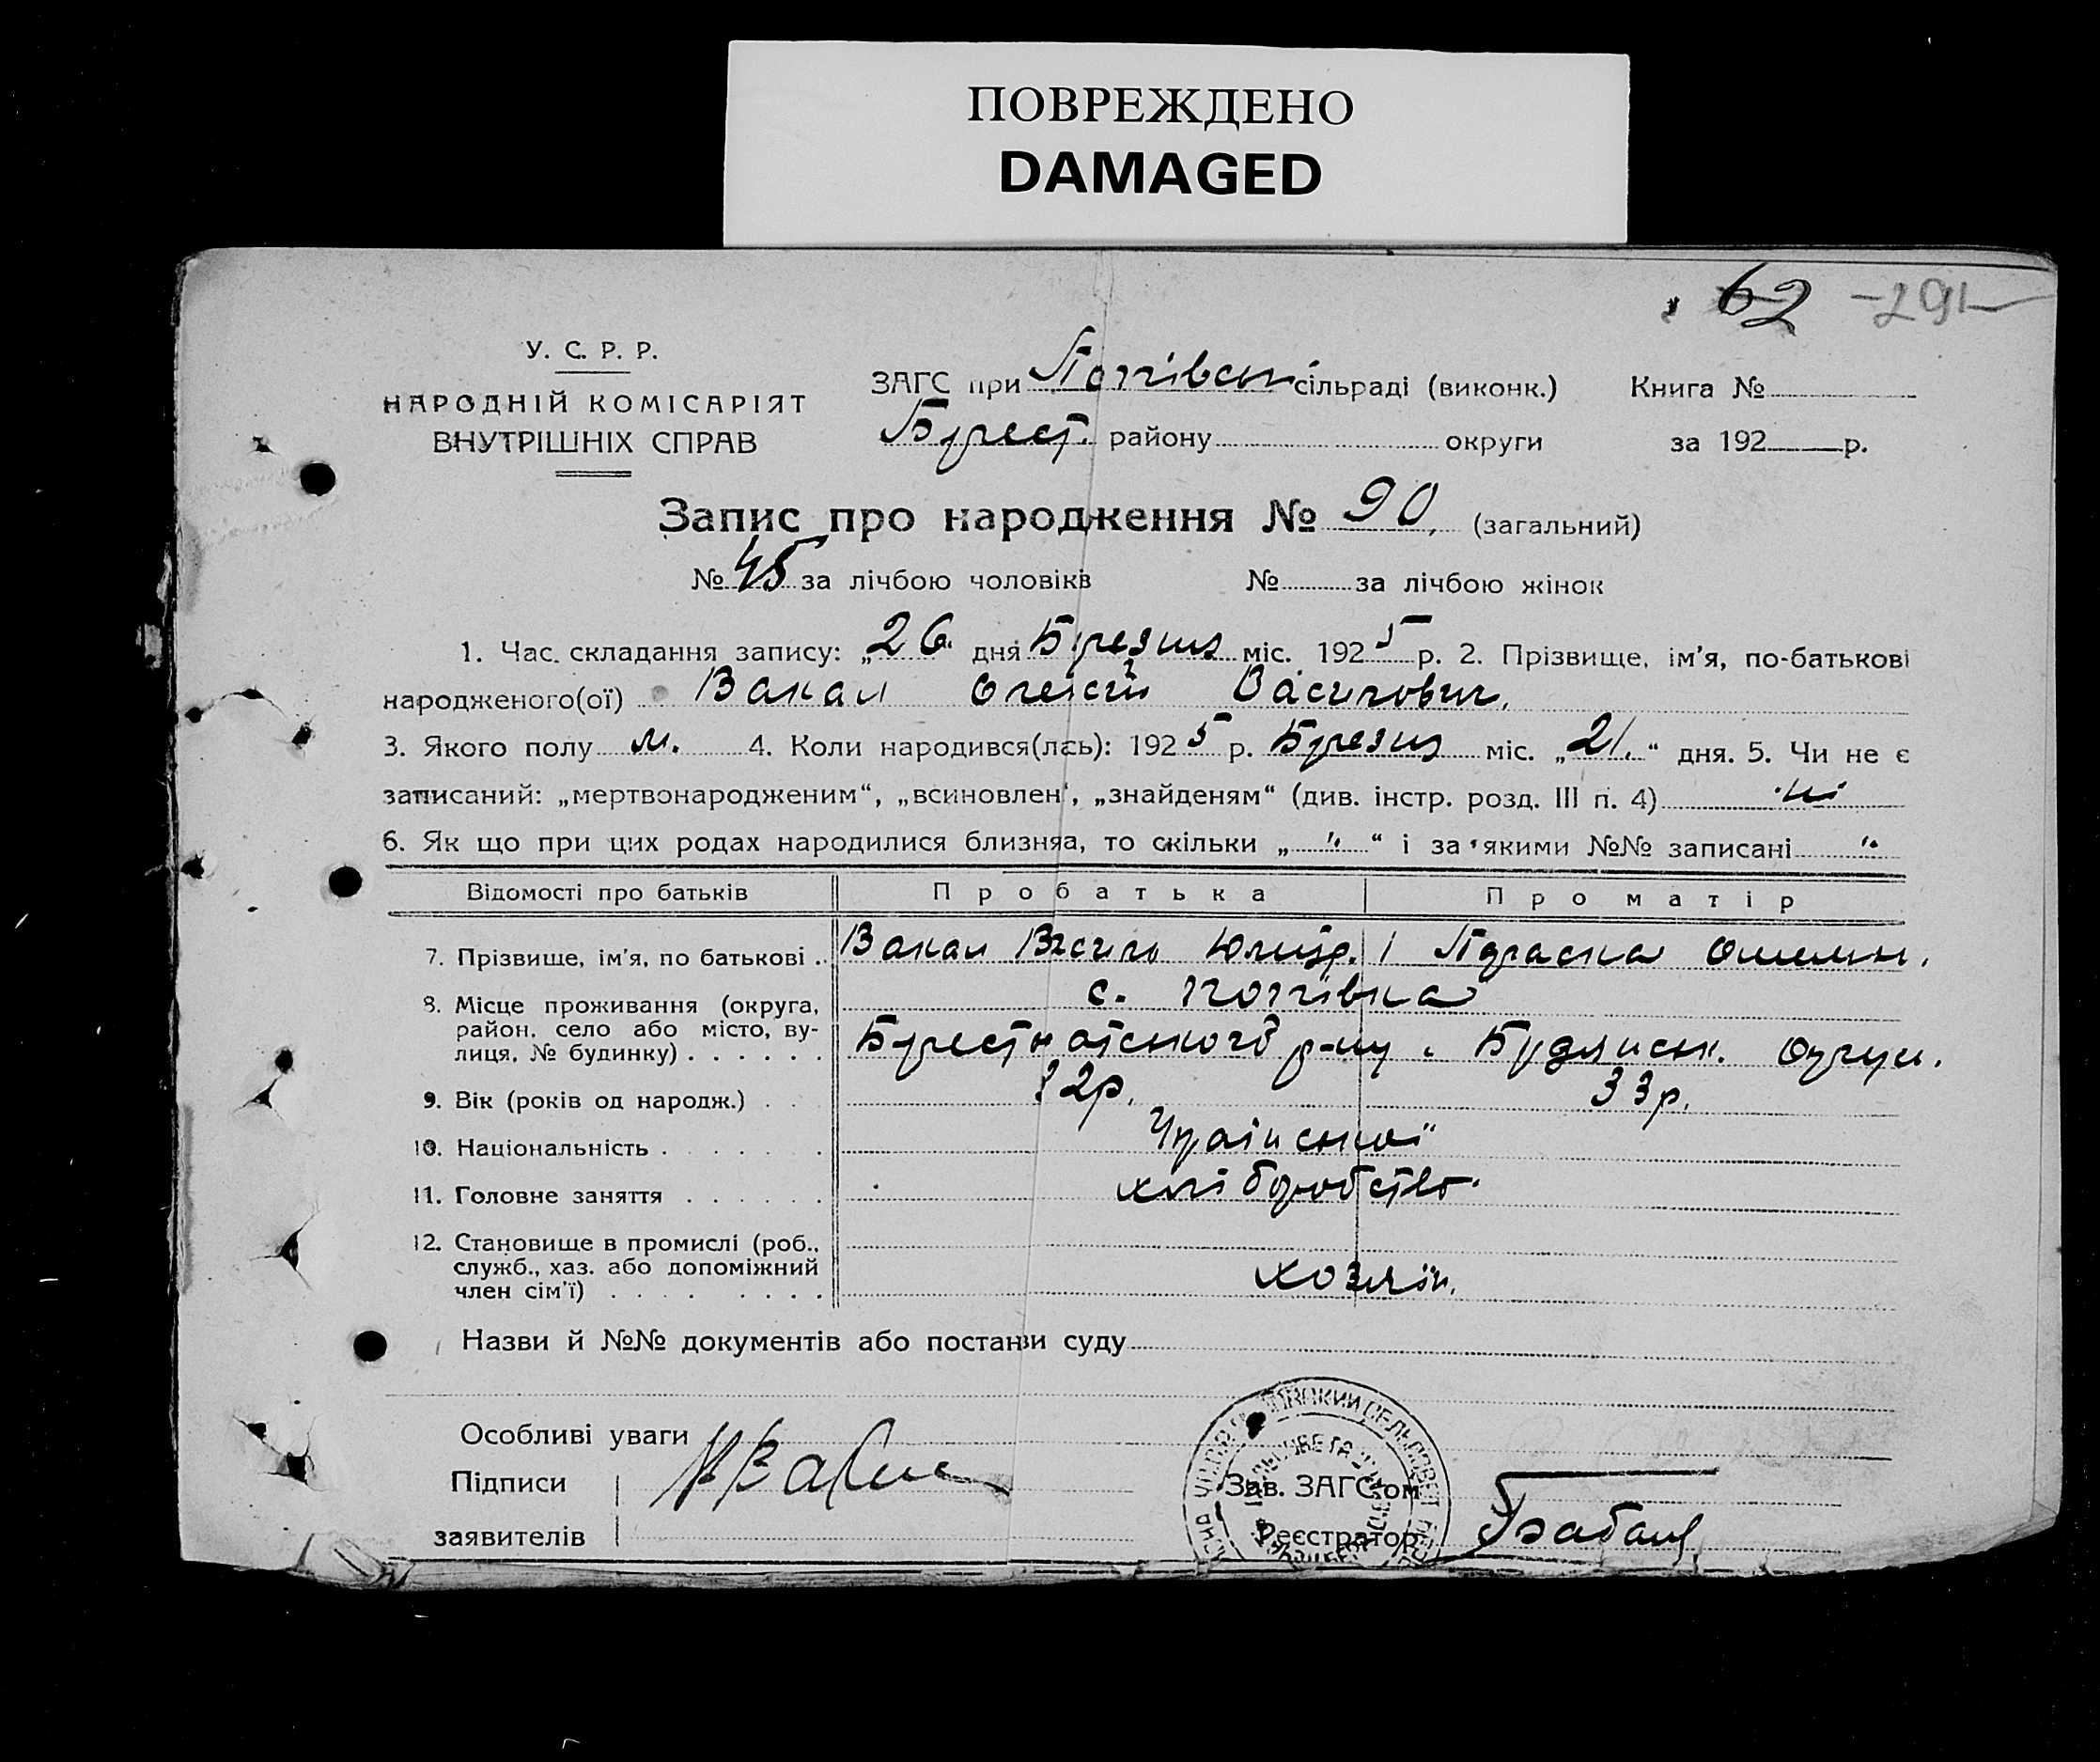 ПОВРЕЖДЕНО
DAMAGED
62 -291-
У. С. Р. Р.
НАРОДНІЙ КОМІСАРІЯТ
ВНУТРІШНІХ СПРАВ
ЗАГС при Попівськ сільраді (виконк.) Книга №
Берест. району округи за 192 р.
Запис про народження № 90, (загальний)
№ 45 за лічбою чоловіків № за лічбою жінок
1. Час складання запису: „26“ дня Березня міс. 1925 р. 2. Прізвище, ім'я, по-батькові
народженого(ої) Вакал Олексій Васильович.
3. Якого полу м. 4. Коли народився(лась): 1925 р. Березня міс. „21.“ дня. 5. Чи не є
записаний: „мертвонародженим“, „всиновлен“, „знайденям“ (див. інстр. розд. III п. 4) ні
6. Як що при цих родах народилися близнята, то скільки „ " “ і за якими №№ записані "
Відомості про батьків Про батька Про матір
7. Прізвище, ім'я, по батькові Вакал Василь Параска
8. Місце проживання (округа, район, село або місто, вулиця, № будинку) с. Попівка
р-ну
9. Вік (років од народж.) 32р. 33р.
10. Національність Української
11. Головне заняття хліборобство.
12. Становище в промислі (роб., служб., хаз. або допоміжний член сім'ї) хозяїн.
Назви й №№ документів або постанви суду
Особливі уваги
Підписи
заявителів
Зав. ЗАГС'ом
Реєстратор